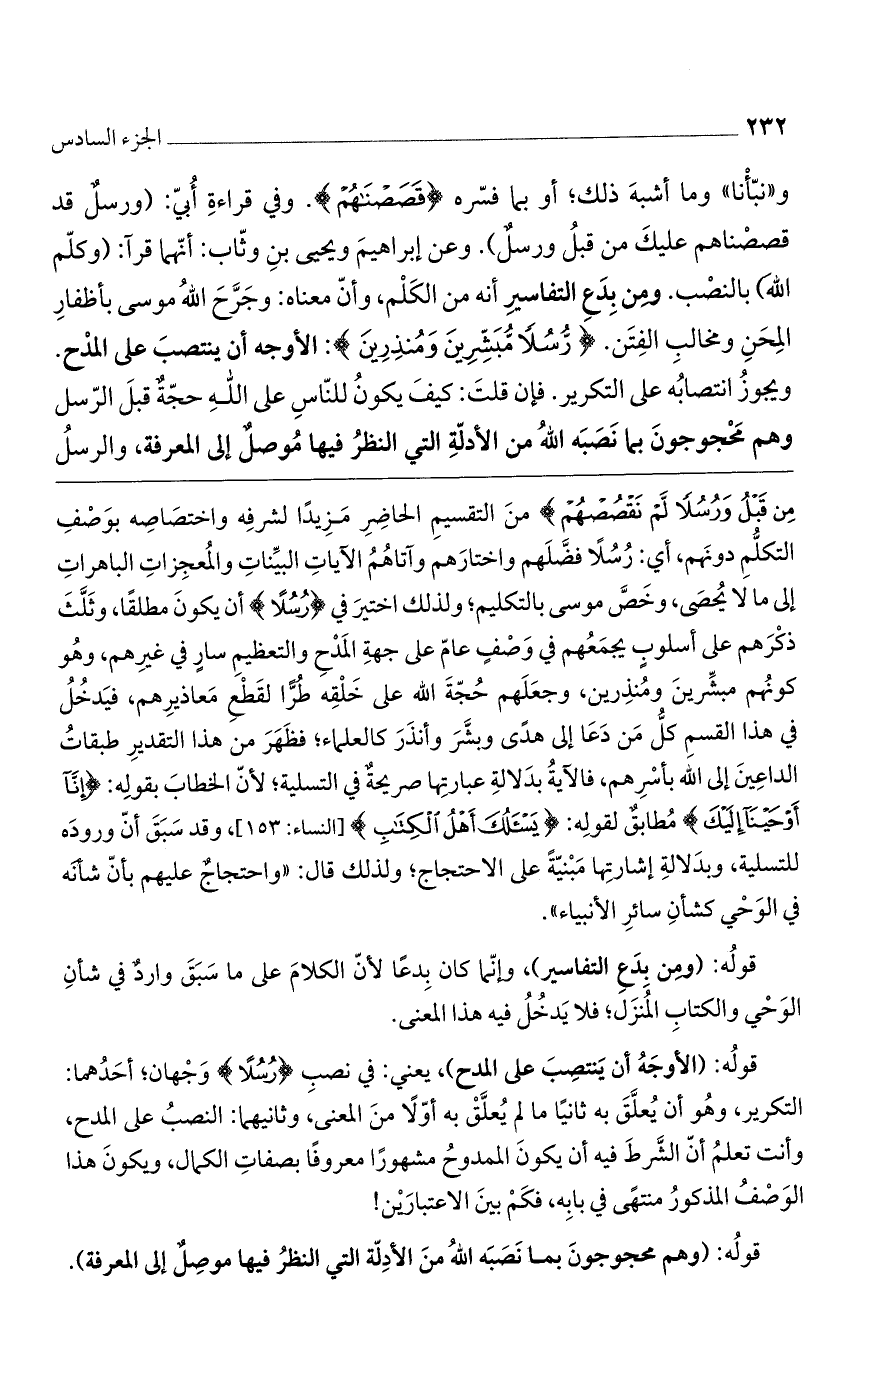 ٢٣٢ الجزء السادس
و«نبّأْنا» وما أشبهَ ذلك؛ أو بما فسّره ﴿قَصَصْنَٰهُمْ﴾. وفي قراءةِ أُبيّ: (ورسلٌ قد
قصصْناهم عليكَ من قبلُ ورسلٌ). وعن إبراهيمَ ويحيى بنِ وثّاب: أنّهما قرآ: (وكلّم
اللهَ) بالنصْب. ومِن بِدَعِ التفاسيرِ أنه من الكَلْم، وأنّ معناه: وجَرَّحَ اللهُ موسى بأظفارِ
المِحَنِ ومخالبِ الفِتَن. ﴿رُّسُلًا مُّبَشِّرِينَ وَمُنذِرِينَ﴾: الأوجه أن ينتصبَ على المدْح.
ويجوزُ انتصابُه على التكرير. فإن قلتَ: كيفَ يكونُ للنّاسِ على اللهِ حجّةٌ قبلَ الرّسل
وهم مَحْجوجونَ بما نَصَبَه اللهُ من الأدلّةِ التي النظرُ فيها مُوصلٌ إلى المعرفة، والرسلُ
مِن قَبْلُ وَرُسُلًا لَّمْ نَقْصُصْهُمْ﴾ منَ التقسيمِ الحاضِرِ مَزِيدًا لشرفِه واختصَاصِه بوَصْفِ
التكلُّمِ دونَهم، أي: رُسُلًا فضَّلَهم واختارَهم وآتاهُمُ الآياتِ البيِّناتِ والمُعجِزاتِ الباهراتِ
إلى ما لا يُحصَى، وخَصَّ موسى بالتكليم؛ ولذلك اختيرَ في ﴿رُسُلًا﴾ أن يكونَ مطلقًا، وثَلَّثَ
ذكْرَهم على أسلوبٍ يجمَعُهم في وَصْفٍ عامّ على جهةِ المَدْحِ والتعظيمِ سارٍ في غيرِهم، وهُو
كونُهم مبشِّرينَ ومُنذِرين، وجعَلَهم حُجّةَ الله على خَلْقِه طُرًّا لقَطْعِ مَعاذيرِهم، فيَدخُلُ
في هذا القسمِ كلُّ مَن دَعَا إلى هدًى وبشَّرَ وأنذَرَ كالعلماء؛ فظَهَرَ من هذا التقديرِ طبقاتُ
الداعِينَ إلى الله بأسْرِهم، فالآيةُ بدَلالةِ عبارتِها صريحةٌ في التسلية؛ لأنّ الخطابَ بقولِه: ﴿إِنَّآ
أَوْحَيْنَآ إِلَيْكَ﴾ مُطابقٌ لقولِه: ﴿يَسْـَٔلُكَ أَهْلُ ٱلْكِتَٰبِ﴾ [النساء: ١٥٣]، وقد سَبَقَ أنّ ورودَه
للتسلية، وبدَلالةِ إشارتِها مَبْنيّةً على الاحتجاج؛ ولذلك قال: «واحتجاجٌ عليهم بأنّ شأنَه
في الوَحْي كشأنِ سائرِ الأنبياء».
قولُه: (ومِن بِدَعِ التفاسير)، وإنّما كان بِدعًا لأنّ الكلامَ على ما سَبَقَ واردٌ في شأنِ
الوَحْي والكتابِ المُنزَل؛ فلا يَدخُلُ فيه هذا المعنى.
قولُه: (الأوجَهُ أن يَنتصِبَ على المدح)، يعني: في نصبِ ﴿رُسُلًا﴾ وَجْهان؛ أحَدُهما:
التكرير، وهُو أن يُعلَّقَ به ثانيًا ما لم يُعلَّقْ به أوّلًا منَ المعنى، وثانيهما: النصبُ على المدح،
وأنت تعلمُ أنّ الشَّرطَ فيه أن يكونَ الممدوحُ مشهورًا معروفًا بصفاتِ الكمال، ويكونَ هذا
الوَصْفُ المذكورُ منتهًى في بابِه، فكَمْ بينَ الاعتبارَيْن!
قولُه: (وهم محجوجونَ بما نَصَبَه اللهُ منَ الأدِلّة التي النظرُ فيها موصِلٌ إلى المعرفة).